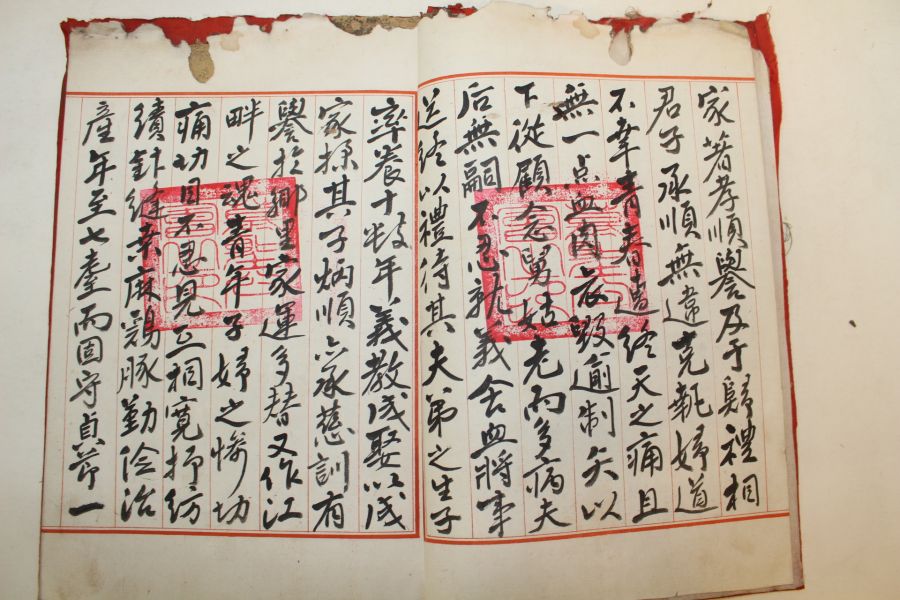 家著孝順譽及于歸禮相
君子承順無違克執婦道
不幸青春遭終天之痛且
無一点血肉哀毀逾制矢以
下從顧念舅姑老而多病夫
后無嗣不忍就義舍血將事
送終以禮待其夫弟之生子
率養十數年義教成娶以成
家操其子炳順亦承慈訓有
譽於鄉里家運多替又作江
畔之魂青年子婦之慘切
痛切目不忍見正相寬抑紡
績針縫桑麻鷄豚勤儉治
產年至七耋而固守貞節一